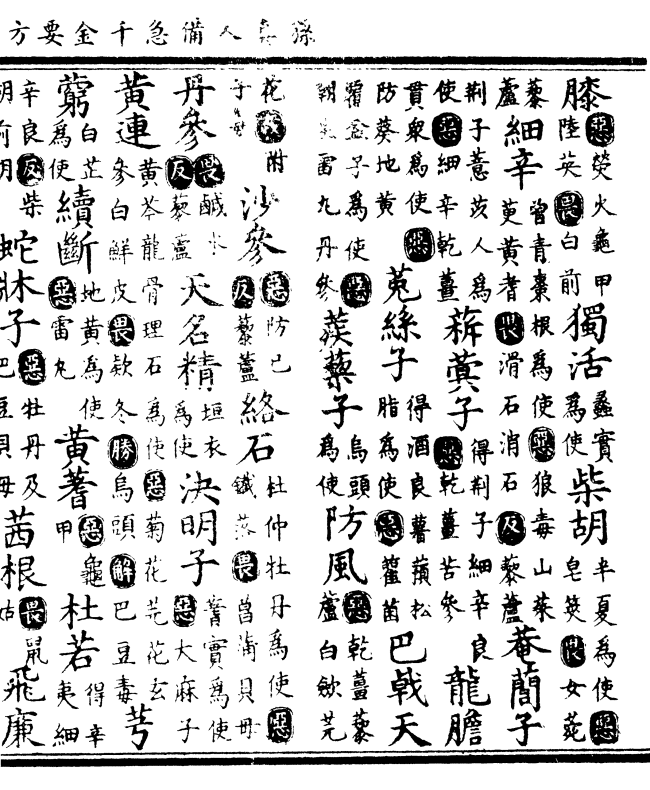 孫真人備急千金要方
膝惡螢火龜甲陸英畏白前獨活蠡實為使柴胡半夏為使惡皂莢畏女菀
藜蘆細辛曾青棗根為使惡狼毒山茱萸黃耆畏滑石消石反藜蘆菴䕡子
荊子薏苡人為使惡細辛乾薑薪蓂子得荊子細辛良惡乾薑苦參龍膽
貫眾為使惡防葵地黃菟絲子得酒良薯蕷松脂為使惡雚菌巴戟天
覆盆子為使惡雷丸丹參蒺藜子烏頭為使防風惡乾薑藜蘆白歛芫
花殺附子毒沙參惡防己反藜蘆絡石杜仲牡丹為使惡鐵落畏菖蒲貝母
丹參畏鹹水反藜蘆天名精垣衣為使決明子蓍實為使惡大麻子
黃連黃芩龍骨理石為使惡菊花芫花玄參白鮮皮畏欵冬勝烏頭解巴豆毒芎
藭白芷為使續斷地黃為使惡雷丸黃蓍惡龜甲杜若得辛夷細
辛良反柴胡前胡蛇床子惡牡丹及巴豆貝母茜根畏鼠姑飛廉